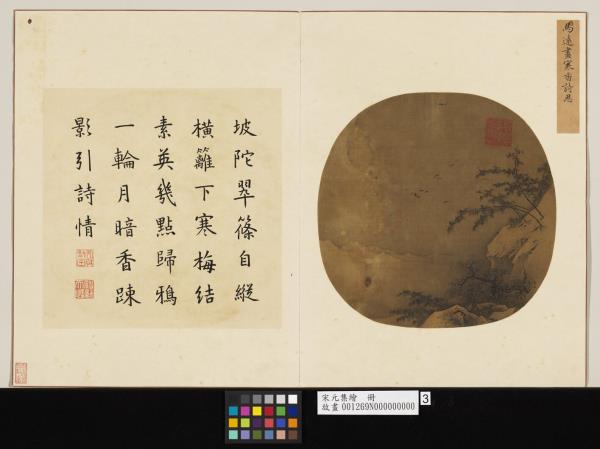 馬遠畫寒香詩思
坡陀翠篠自縱
橫籬下寒梅結
素英幾點歸鴉
一輪月暗香踈
影引詩情
宋元集繪 冊
故畫 001269N000000000
3